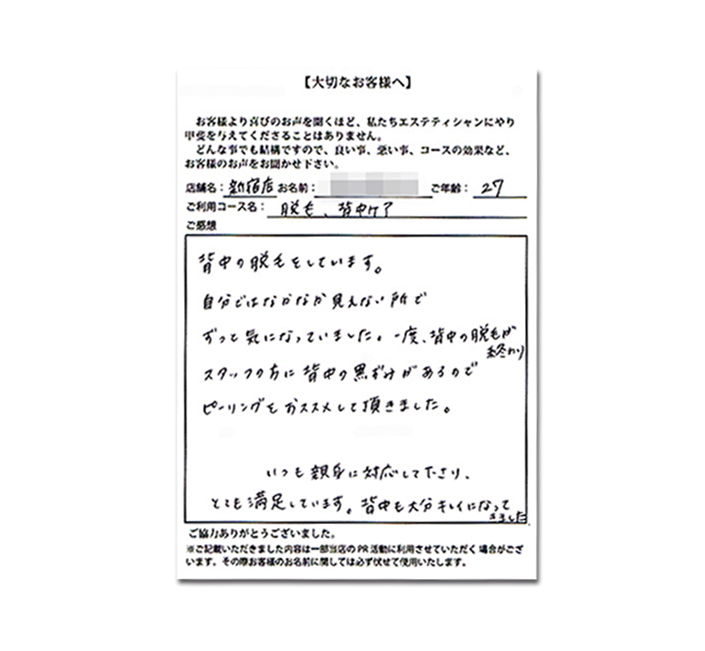 【大切なお客様へ】
お客様より喜びのお声を聞くほど、私たちエステティシャンにやり
甲斐を与えてくださることはありません。
どんな事でも結構ですので、良い事、悪い事、コースの効果など、
お客様のお声をお聞かせ下さい。
店舗名：新宿店 お名前： ご年齢：27
ご利用コース名：脱毛、背中ケア
ご感想
背中の脱毛をしています。
自分ではなかなか見えない所で
ずっと気になっていました。一度、背中の脱毛が
終わり
スタッフの方に背中の黒ずみがあるので
ピーリングをおススメして頂きました。
いつも親身に対応して下さり、
とても満足しています。背中も大分キレイになって
きました
ご協力ありがとうございました。
※ご記載いただきました内容は一部当店のPR活動に利用させていただく場合がござ
います。その際お客様のお名前に関しては必ず伏せて使用いたします。